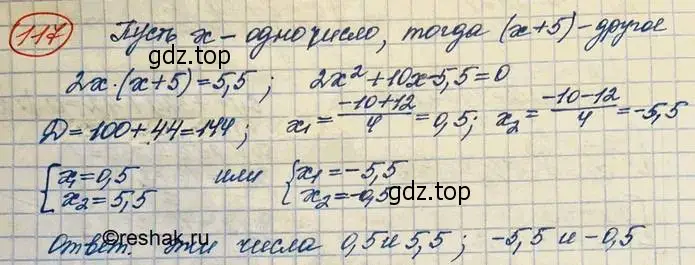 117 Пусть x - одно число, тогда (x+5) - другое
gdz.top
2x·(x+5)=5,5; 2x²+10x-5,5=0
D=100+44=144; x₁=(-10+12)/4=0,5; x₂=(-10-12)/4=-5,5
{x₁=0,5 x₂=5,5 или {x₁=-5,5 x₂=-0,5
gdz.top
Ответ: эти числа 0,5 и 5,5; -5,5 и -0,5
©reshak.ru gdz.top